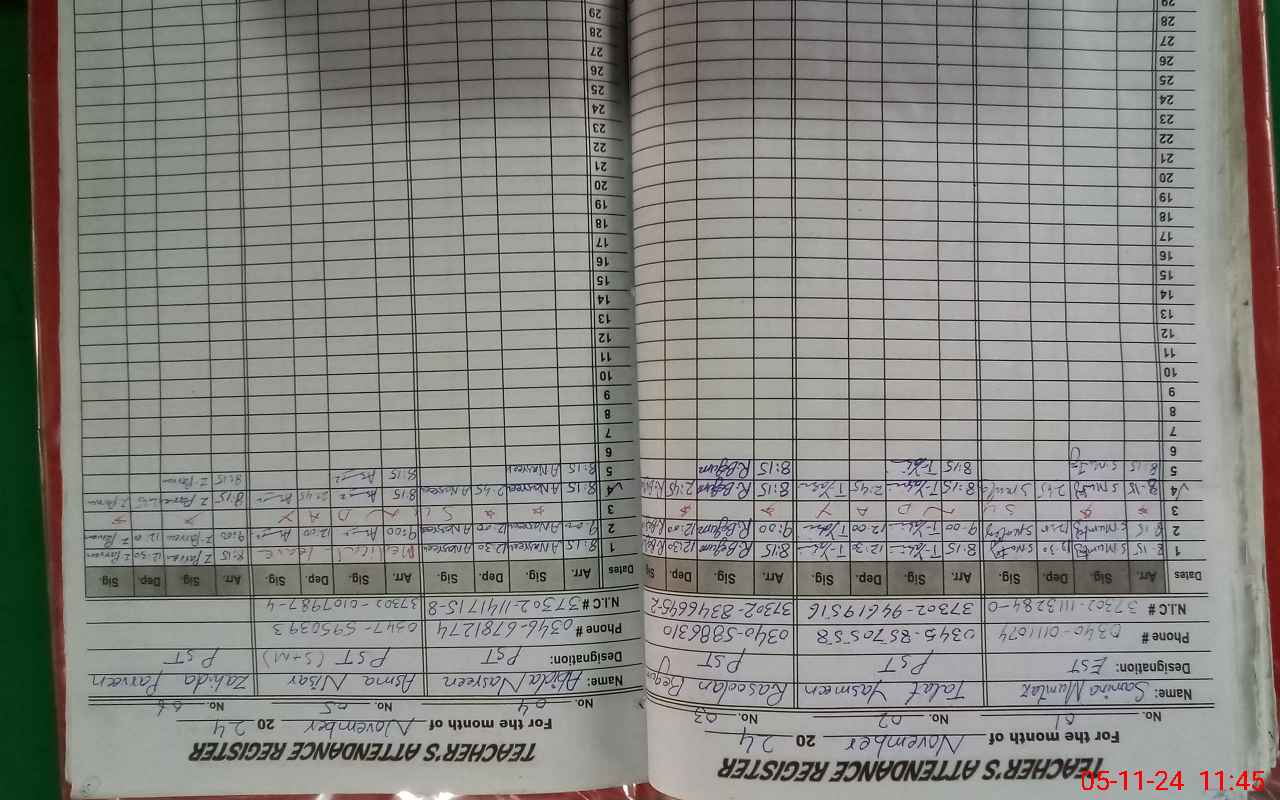 TEACHER'S ATTENDANCE REGISTER
For the month of November 2024
No. 01 No. 02 No. 03
Name: Samina Mumtaz Talat Yasmeen Rasoolan Begum
Designation: EST PST PST
Phone # 0340-0111074 0345-8570558 0340-5886310
N.I.C # 37302-1113284-0 37302-94619516 37302-8346645-2
Dates Arr. Sig. Dep. Sig. Arr. Sig. Dep. Sig. Arr. Sig. Dep. Sig
1 8:15 S.Mumtaz 12:30 8:15 T-Yas 12:30 T-Yas 8:15 R.Begum 12:30
2 8:15 S.Mumtaz 12:00 9:00 T-Yas 12:00 T-Yas 9:00 R.Begum 12:00
3 S U N D A Y
4 8:15 S.Mumtaz 2:45 8:15 T-Yas 2:45 T-Yas 8:15 R.Begum 2:45
5 8:15 8:15 T-Yas 8:15 R.Begum
6
7
8
9
10
11
12
13
14
15
16
17
18
19
20
21
22
23
24
25
26
27
28
29
TEACHER'S ATTENDANCE REGISTER
For the month of November 2024
No. 04 No. 05 No. 06
Name: Abida Nasreen Asma Nisar Zahida Parveen
Designation: PST PST (S+M) PST
Phone # 0346-6781274 0347-5950393
N.I.C # 37302-1141715-8 37302-0107987-4
Dates Arr. Sig. Dep. Sig. Arr. Sig. Dep. Sig. Arr. Sig. Dep. Sig.
1 8:15 A Nasreen 12:30 A Nasreen Medical leave 8:15 Z Parveen 12:30 Z Parveen
2 9:00 A Nasreen 12:00 A Nasreen 9:00 12:00 9:00 Z Parveen 12:00 Z Parveen
3 S U N D A Y
4 8:15 A Nasreen 2:45 A Nasreen 8:15 2:45 8:15 Z Parveen 2:45 Z Parveen
5 8:15 A Nasreen 8:15 8:15 Z Parveen
6
7
8
9
10
11
12
13
14
15
16
17
18
19
20
21
22
23
24
25
26
27
28
29
05-11-24 11:45